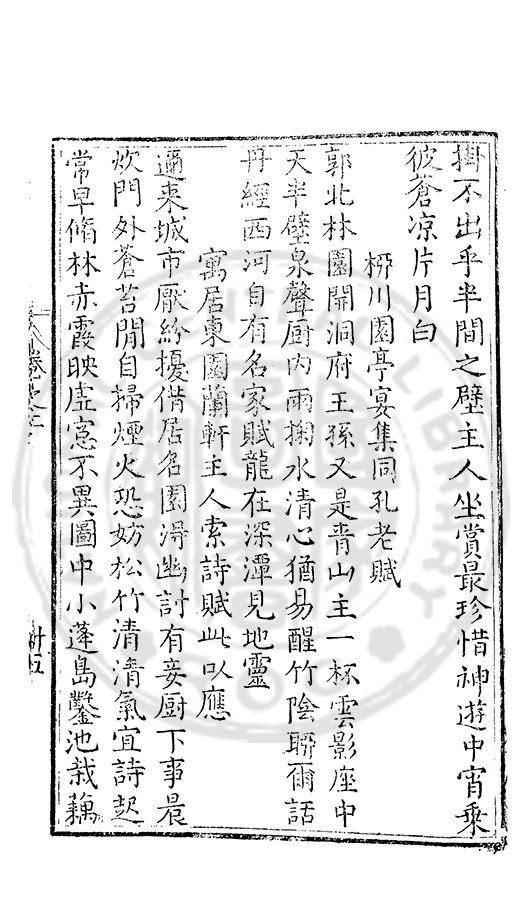 掛不出乎半間之壁主人坐賞最珍惜神遊中宵乘
彼蒼凉片月白
川園亭宴集同孔老賦
郭北林園開洞府王孫又是青山主一杯雲影座中
天半壁泉聲厨内雨掬水清心猶易醒竹陰聯爾話
丹經西河自有名家賦龍在深潭見地靈
寓居東園蘭軒主人索詩賦此以應
邇來城市厭紛擾借居名園得幽討有妾厨下事晨
炊門外蒼苔閒自掃煙火恐妨松竹清清氣宜詩起
常早脩林赤霞映虛窓不異圖中小蓬島鑿池栽藕
卅五